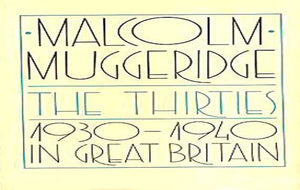 ·MALCOLM·
MUGGERIDGE
THE THIRTIES
1930-1940
IN GREAT BRITAIN